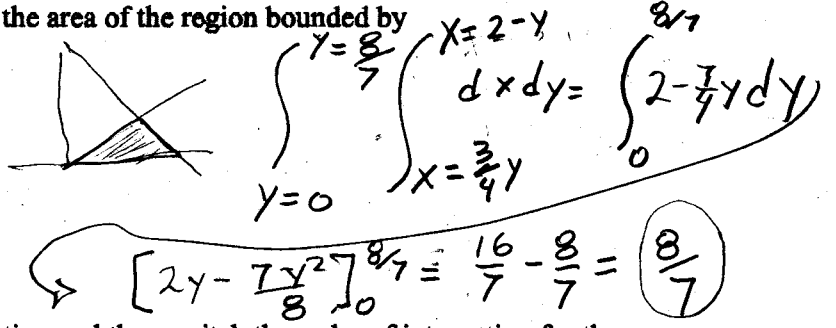 the area of the region bounded by
∫_{y=0}^{y=8/7} ∫_{x=3/4 y}^{x=2-y} dxdy = ∫_0^{8/7} 2-7/4 y dy
[2y - 7y²/8]_0^{8/7} = 16/7 - 8/7 = 8/7